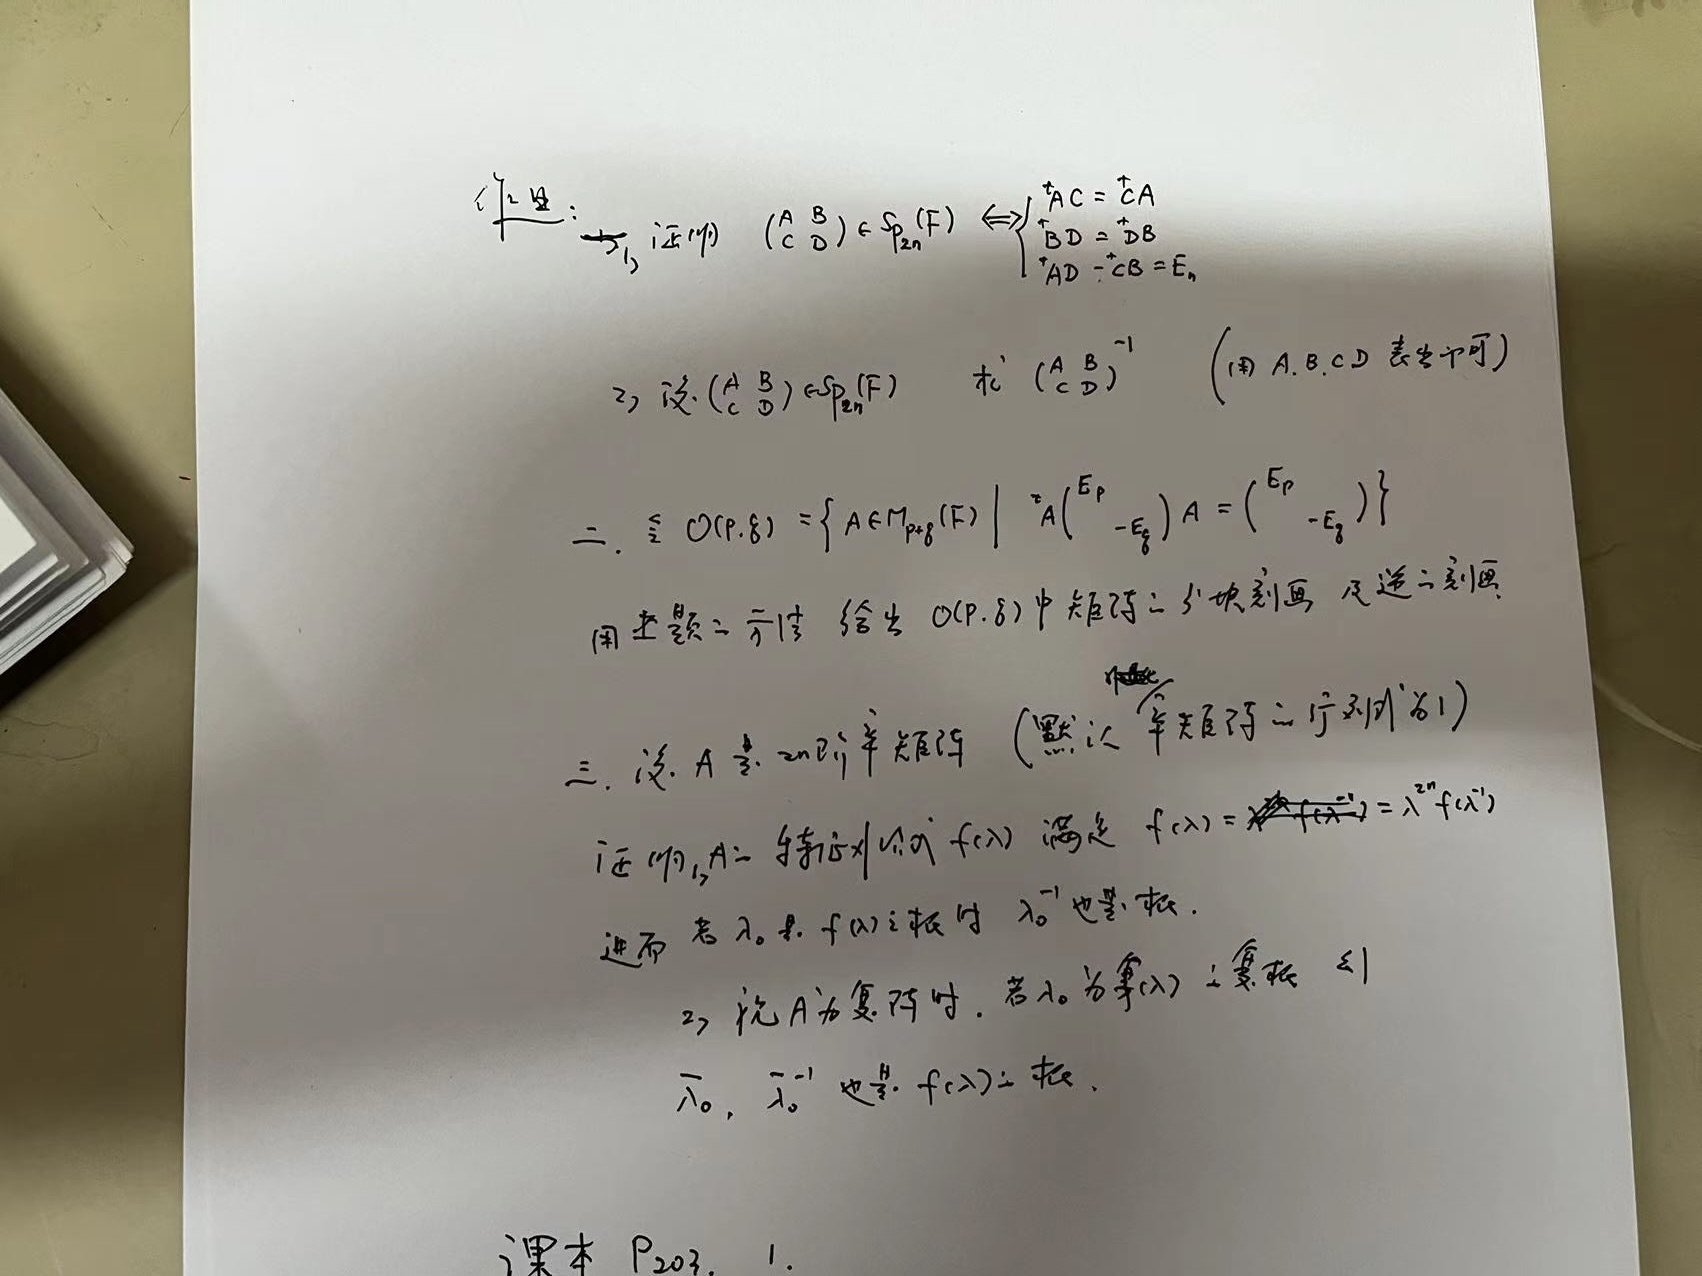 作业: 一、1, 证明 (A B C D) ∈ Sp₂ₙ(F) ⟺ { ᵗAC = ᵗCA
ᵗBD = ᵗDB
ᵗAD - ᵗCB = Eₙ
2, 设 (A B C D) ∈ Sp₂ₙ(F) 求 (A B C D)⁻¹ (用 A.B.C D 表出即可)
二. 令 O(p.q) = { A ∈ M_{p+q}(F) | ᵗA (E_p -E_q) A = (E_p -E_q) }
用上题之方法 给出 O(p.q) 中矩阵之分块刻画 及逆之刻画
三. 设 A 是 2n阶辛矩阵 (默认辛矩阵之行列式为1)
证明 1, A之特征对多项式 f(λ) 满足 f(λ) = = λ²ⁿ f(λ⁻¹)
进而 若 λ₀ 是 f(λ) 之根时 λ₀⁻¹ 也是根.
2, A为复阵时. 若 λ₀ 为 f(λ) 之复根 则
λ̄₀, λ̄₀⁻¹ 也是 f(λ) 之根.
课本 P203. 1.